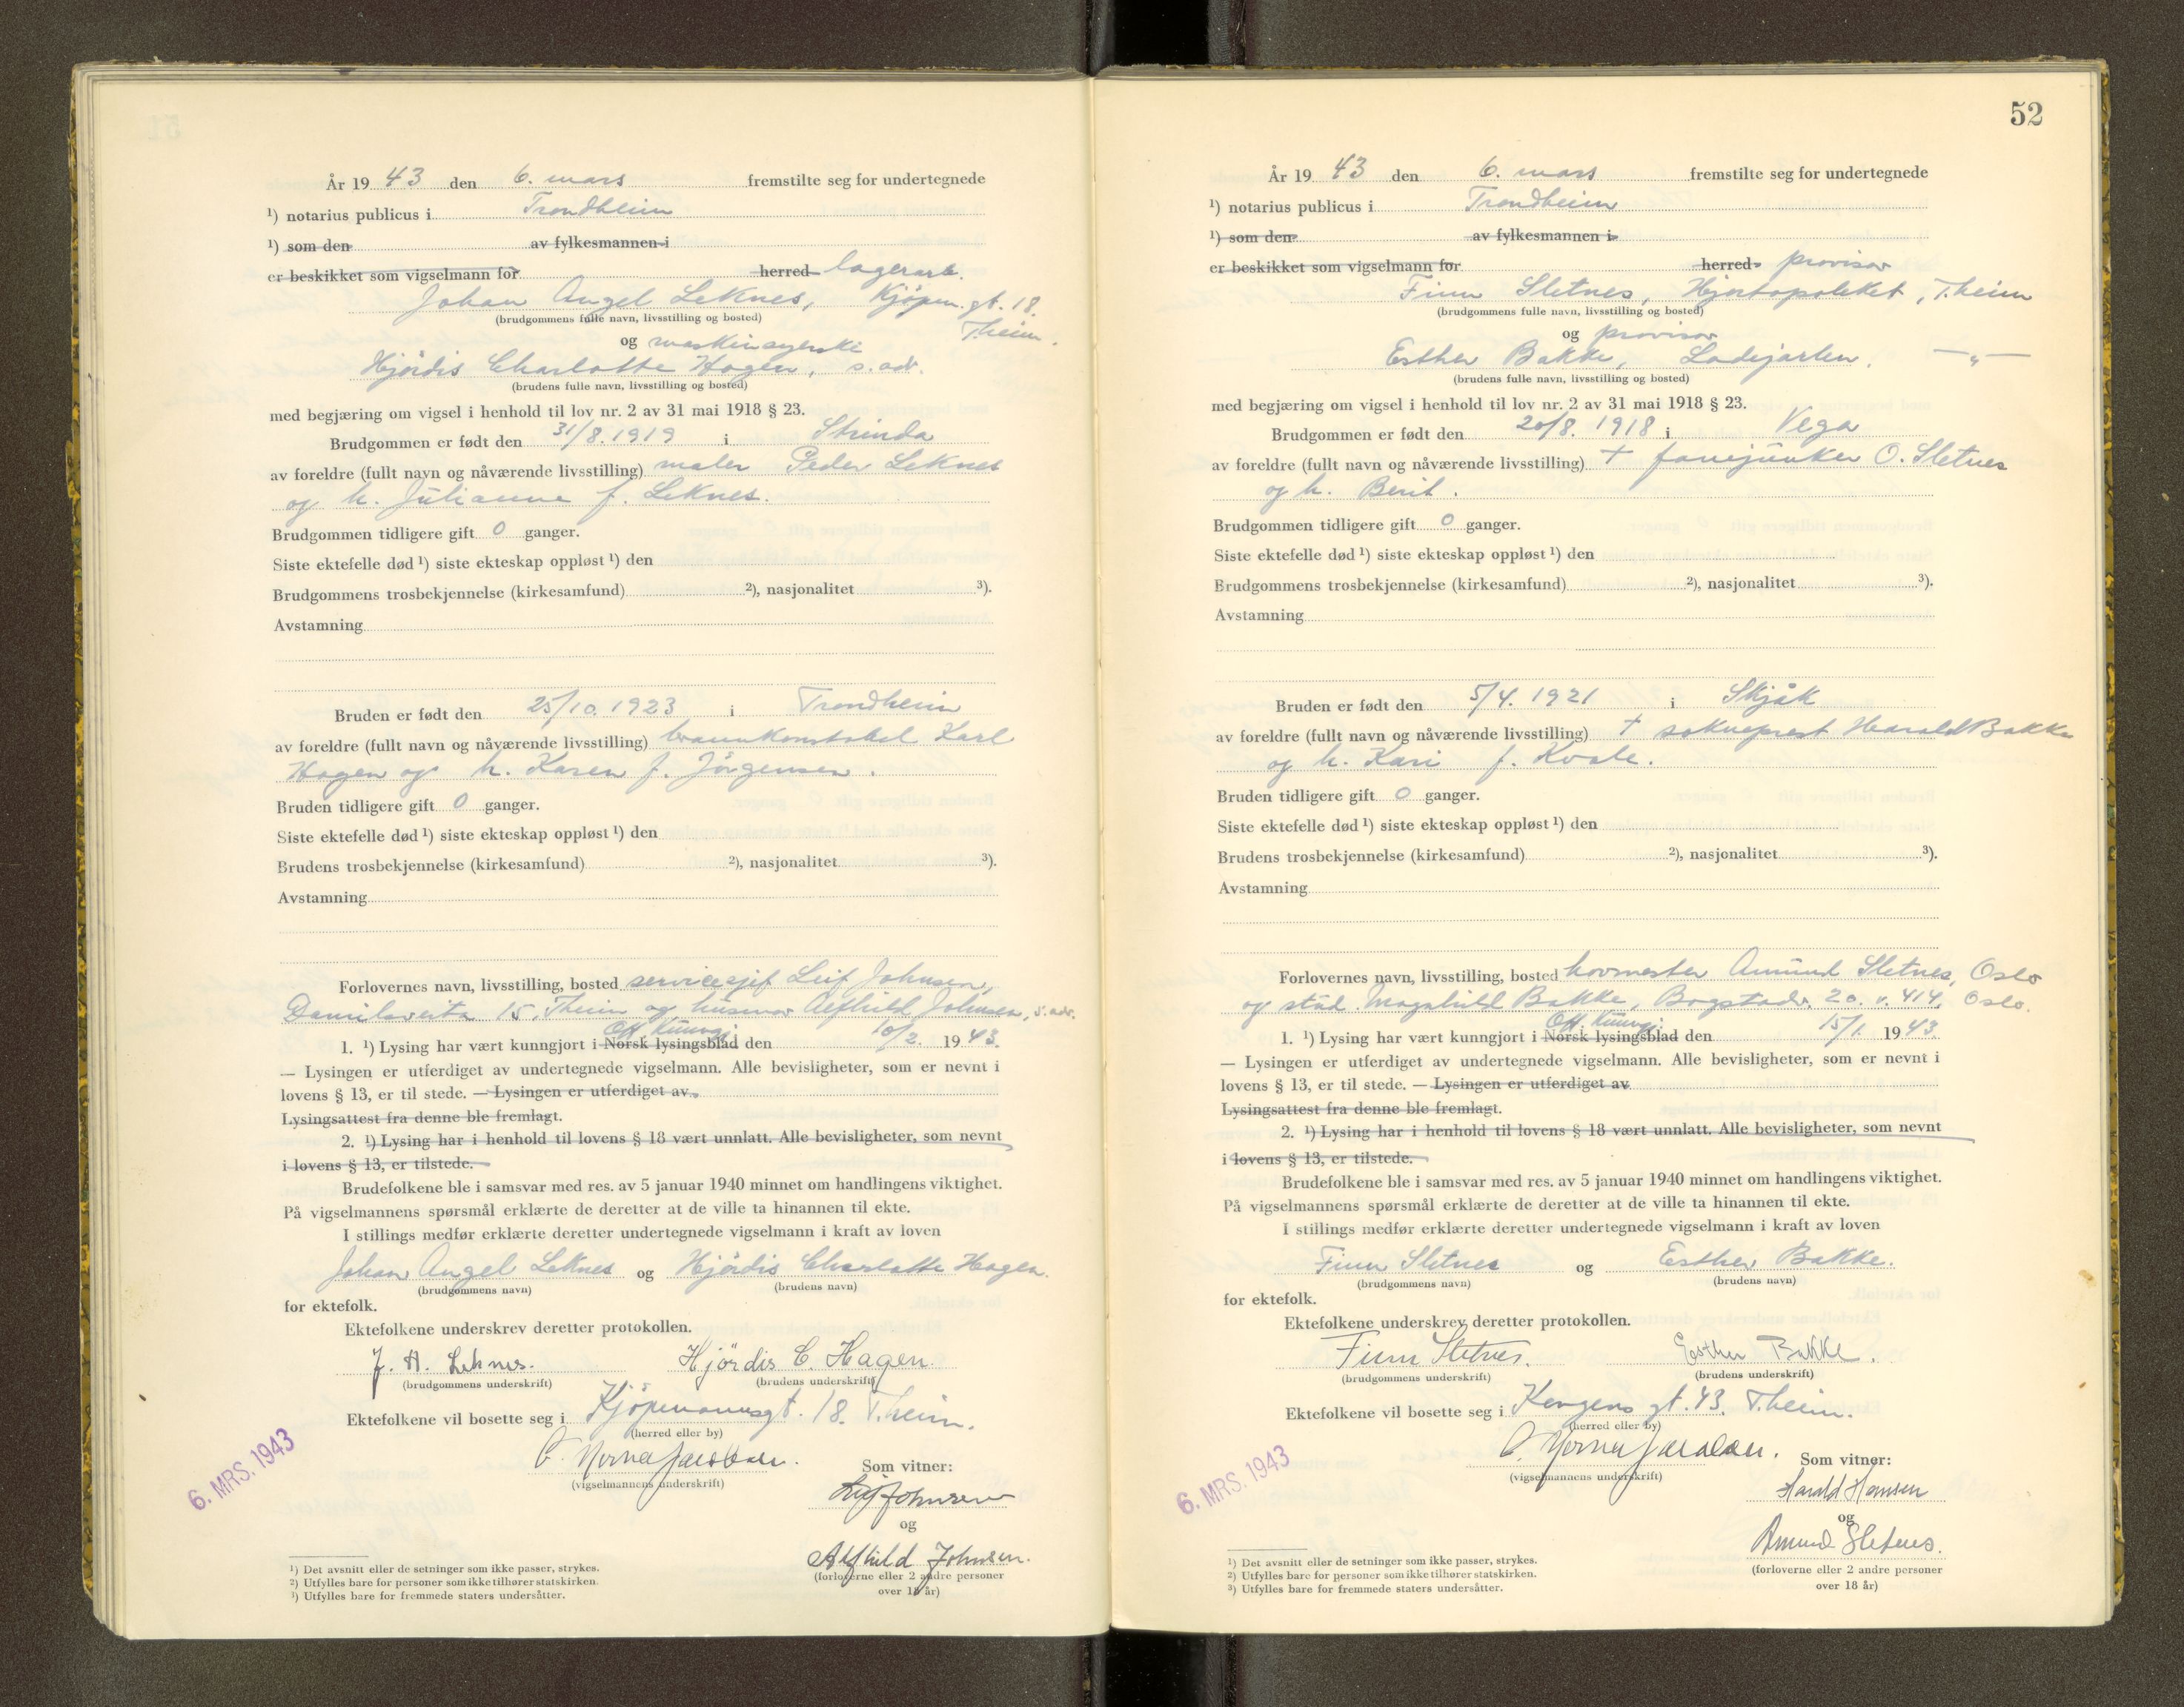 År 19 43 den 6. mars fremstilte seg for undertegnede
¹) notarius publicus i Trondheim
¹) som den av fylkesmannen i
er beskikket som vigselmann for herred lagerarb.
Johan Angel Leknes, Kjøpm.gt. 18.
(brudgommens fulle navn, livsstilling og bosted)
T.heim.
og maskinsyerske
Hjördis Charlotte Hagen, s. adr.
(brudens fulle navn, livsstilling og bosted)
med begjæring om vigsel i henhold til lov nr. 2 av 31 mai 1918 § 23.
Brudgommen er født den 31/8. 1919 i Strinda
av foreldre (fullt navn og nåværende livsstilling) maler Peder Leknes
og h. Julianne f. Leknes.
Brudgommen tidligere gift 0 ganger.
Siste ektefelle død ¹) siste ekteskap oppløst ¹) den
Brudgommens trosbekjennelse (kirkesamfund) ²), nasjonalitet ³).
Avstamning
Bruden er født den 25/10. 1923 i Trondheim
av foreldre (fullt navn og nåværende livsstilling) brannkonstabel Karl
Hagen og h. Karen f. Jörgensen.
Bruden tidligere gift 0 ganger.
Siste ektefelle død ¹) siste ekteskap oppløst ¹) den
Brudens trosbekjennelse (kirkesamfund) ²), nasjonalitet ³).
Avstamning
Forlovernes navn, livsstilling, bosted servicesjef Leif Johnsen,
15, T.heim og husmor Alfhild Johnsen, s. adr.
Off. Kunngj.
1. ¹) Lysing har vært kunngjort i Norsk lysingsblad den 10/2. 19 43.
— Lysingen er utferdiget av undertegnede vigselmann. Alle bevisligheter, som er nevnt i
lovens § 13, er til stede. — Lysingen er utferdiget av
Lysingsattest fra denne ble fremlagt.
2. ¹) Lysing har i henhold til lovens § 18 vært unnlatt. Alle bevisligheter, som nevnt
i lovens § 13, er tilstede.
Brudefolkene ble i samsvar med res. av 5 januar 1940 minnet om handlingens viktighet.
På vigselmannens spørsmål erklærte de deretter at de ville ta hinannen til ekte.
I stillings medfør erklærte deretter undertegnede vigselmann i kraft av loven
Johan Angel Leknes og Hjördis Charlotte Hagen.
(brudgommens navn) (brudens navn)
for ektefolk.
Ektefolkene underskrev deretter protokollen.
J. A. Leknes. Hjördis C. Hagen.
(brudgommens underskrift) (brudens underskrift)
Ektefolkene vil bosette seg i Kjöpmannsgt. 18. T.heim.
(herred eller by)
(vigselmannens underskrift)
Som vitner:
Leif Johnsen
og
Alfhild Johnsen.
(forloverne eller 2 andre personer
over 18 år)
6. MRS. 1943
¹) Det avsnitt eller de setninger som ikke passer, strykes.
²) Utfylles bare for personer som ikke tilhører statskirken.
³) Utfylles bare for fremmede staters undersåtter.
52
År 19 43 den 6. mars fremstilte seg for undertegnede
¹) notarius publicus i Trondheim
¹) som den av fylkesmannen i
er beskikket som vigselmann for herred provisor
Finn Sletnes, Hjortapoteket, T.heim
(brudgommens fulle navn, livsstilling og bosted)
og provisor
Esther Bakke, Ladejarlen. —„—
(brudens fulle navn, livsstilling og bosted)
med begjæring om vigsel i henhold til lov nr. 2 av 31 mai 1918 § 23.
Brudgommen er født den 20/8. 1918 i Vega
av foreldre (fullt navn og nåværende livsstilling) † fanejunker O. Sletnes
og h. Berit.
Brudgommen tidligere gift 0 ganger.
Siste ektefelle død ¹) siste ekteskap oppløst ¹) den
Brudgommens trosbekjennelse (kirkesamfund) ²), nasjonalitet ³).
Avstamning
Bruden er født den 5/4. 1921 i Skjåk
av foreldre (fullt navn og nåværende livsstilling) † sokneprest Harald Bakke
og h. Kari f. Kvale.
Bruden tidligere gift 0 ganger.
Siste ektefelle død ¹) siste ekteskap oppløst ¹) den
Brudens trosbekjennelse (kirkesamfund) ²), nasjonalitet ³).
Avstamning
Forlovernes navn, livsstilling, bosted hovmester Amund Sletnes, Oslo
og stud. Magnhild Bakke, Bogstadv. 20. v. 414, Oslo.
Off. Kunngj.
1. ¹) Lysing har vært kunngjort i Norsk lysingsblad den 15/1. 19 43.
— Lysingen er utferdiget av undertegnede vigselmann. Alle bevisligheter, som er nevnt i
lovens § 13, er til stede. — Lysingen er utferdiget av
Lysingsattest fra denne ble fremlagt.
2. ¹) Lysing har i henhold til lovens § 18 vært unnlatt. Alle bevisligheter, som nevnt
i lovens § 13, er tilstede.
Brudefolkene ble i samsvar med res. av 5 januar 1940 minnet om handlingens viktighet.
På vigselmannens spørsmål erklærte de deretter at de ville ta hinannen til ekte.
I stillings medfør erklærte deretter undertegnede vigselmann i kraft av loven
Finn Sletnes og Esther Bakke.
(brudgommens navn) (brudens navn)
for ektefolk.
Ektefolkene underskrev deretter protokollen.
Finn Sletnes. Esther Bakke.
(brudgommens underskrift) (brudens underskrift)
Ektefolkene vil bosette seg i Kongens gt. 43. T.heim.
(herred eller by)
(vigselmannens underskrift)
Som vitner:
Harald Hansen
og
Amund Sletnes.
(forloverne eller 2 andre personer
over 18 år)
6. MRS. 1943
¹) Det avsnitt eller de setninger som ikke passer, strykes.
²) Utfylles bare for personer som ikke tilhører statskirken.
³) Utfylles bare for fremmede staters undersåtter.